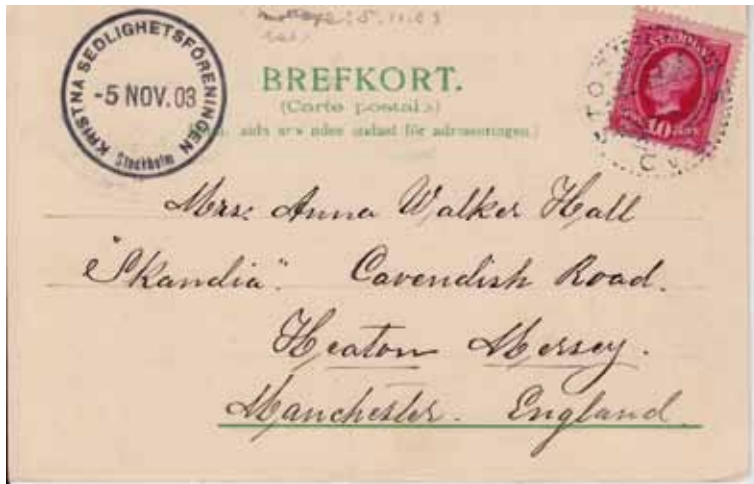 KRISTNA SEDLIGHETSFÖRENINGEN
-5 NOV. 03
Stockholm
5.11.03
BREFKORT.
(Carte postale)
för adresseringen.)
10
Mrs: Anna Walker Hall
"Skandia". Cavendish Road.
Heaton Mersey.
Manchester. England.